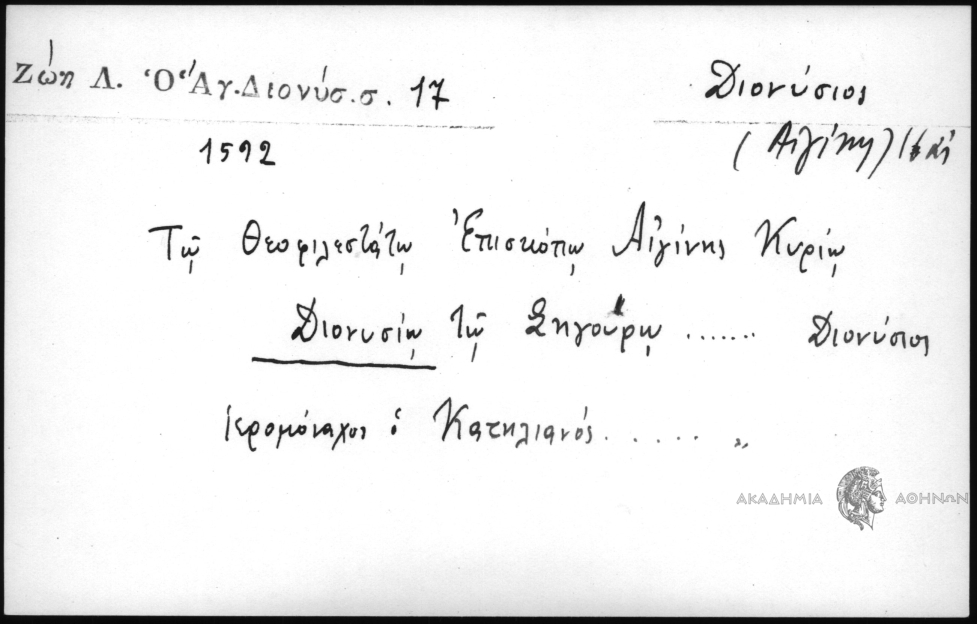 Ζώη Λ. Ὁ Ἁγ.Διονύσ.σ. 17
Διονύσιος
1592
(Αἰγίνης)
Τῷ Θεοφιλεστάτῳ Ἐπισκόπῳ Αἰγίνης Κυρίῳ
Διονυσίῳ τῷ Σηγούρῳ ....... Διονύσιος
ἱερομόναχος ὁ Κατηλιανός ...... "
ΑΚΑΔΗΜΙΑ ΑΘΗΝΩΝ